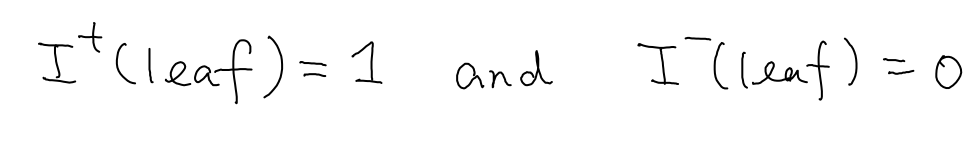 I⁺(leaf) = 1 and I⁻(leaf) = 0